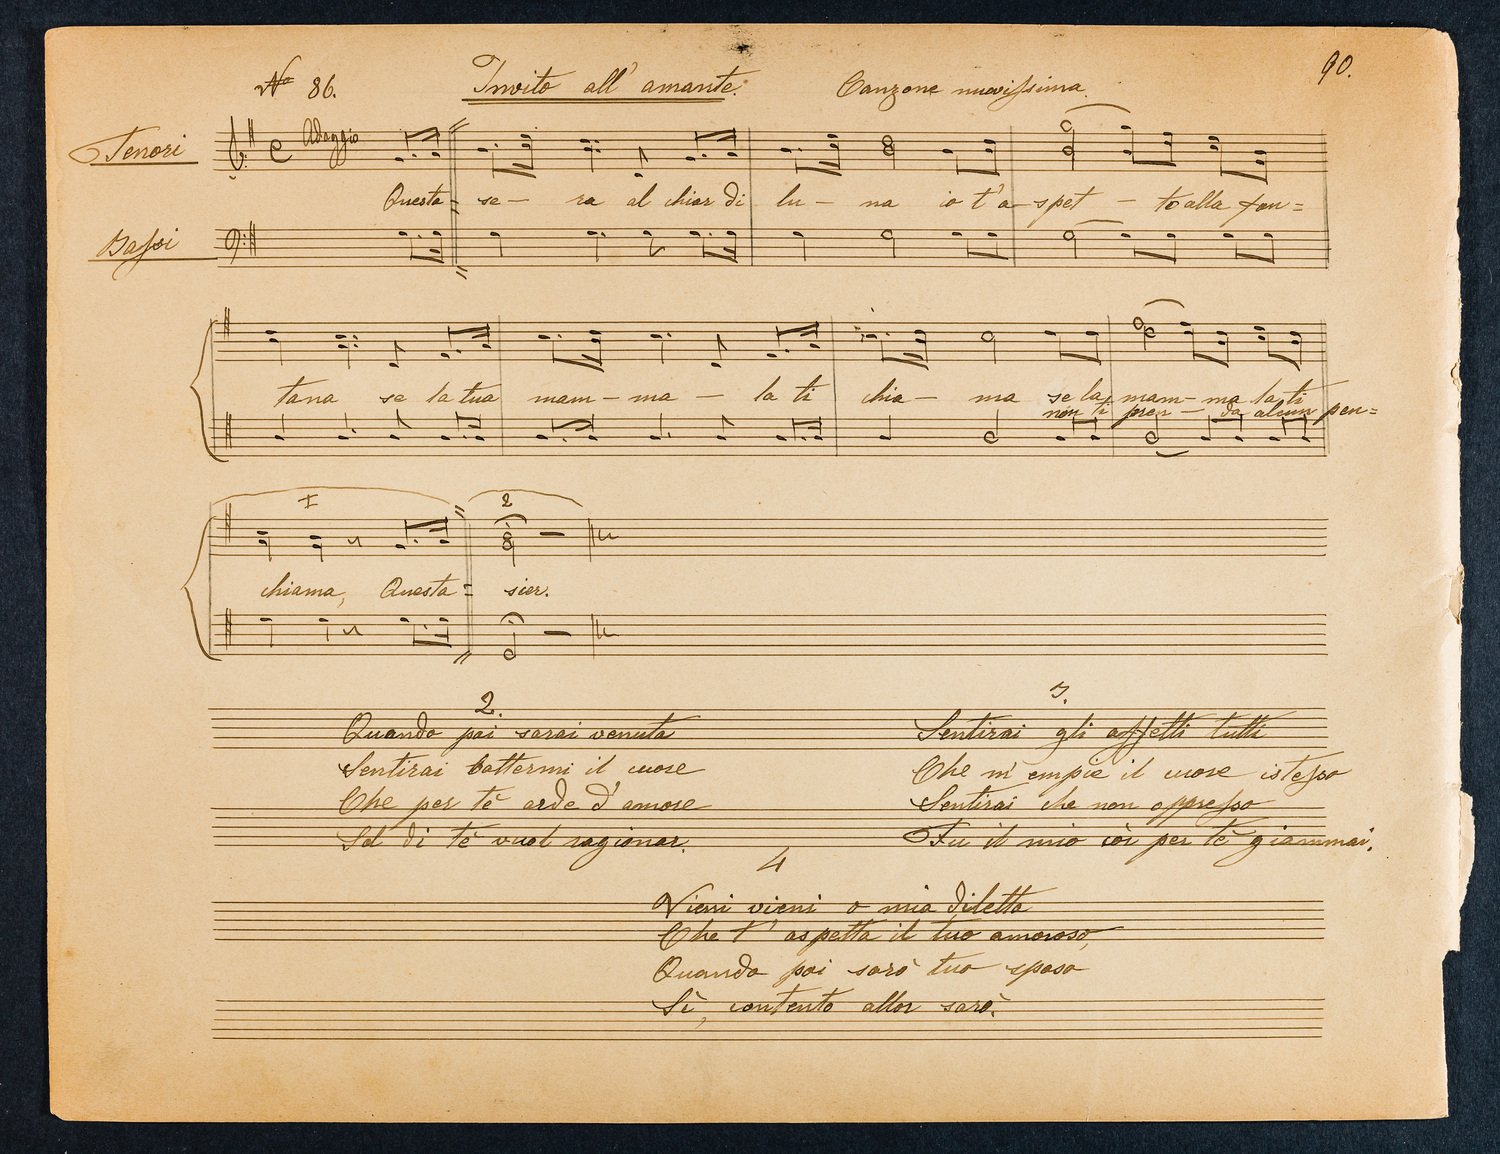 No 86. Invito all' amante. Canzone nuovissima. 90.
Tenori Adagio
Questa = se - ra al chiar di lu - na io t'a - spet - to alla fon =
Bassi
tana se la tua mam - ma - la ti chia - ma se la mam - ma la ti
non ti pren - da alcun pen =
I 2
chiama, Questa = sier.
2.
Quando poi sarai venuta
Sentirai battermi il cuore
Che per tè arde d'amore
Sol di tè vuol ragionar.
3.
Sentirai gli affetti tutti
Che m'empie il cuore istesso
Sentirai che non oppresso
Fu il mio còr per tè giammai.
4
Vieni vieni o mia diletta
Che t'aspetta il tuo amoroso,
Quando poi sarò tuo sposo
Sì, contento allor sarò.